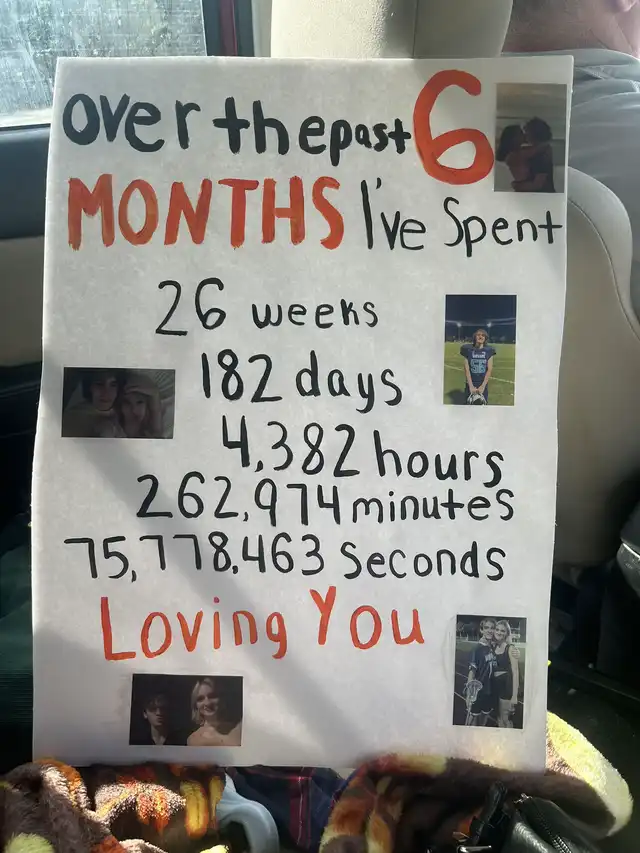 over the past 6
MONTHS I've Spent
26 weeks
182 days
4,382 hours
262,974 minutes
75,778,463 seconds
Loving You